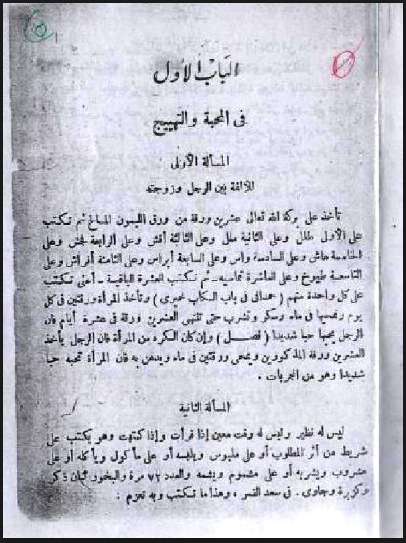 الباب الأول
فى المحبة والتهييج
المسألة الأولى
للالفة بين الرجل وزوجته
تأخذ على بركة الله تعالى عشرين ورقة من ورق الليمون المالح ثم تكتب
على الاولى طلل وعلى الثانية ملل وعلى الثالثة أفش وعلى الرابعة فش وعلى
الخامسة هاش وعلى السادسة واس وعلى السابعة أبراس وعلى الثامنة أفراش وعلى
التاسعة طيوخ وعلى العاشرة تماسيه ـ ثم تكتب العشرة الباقية ـ أعنى تكتب
على كل واحدة منهم ( فى باب الكتاب ) وتأخذ المرأة ورقتين فى كل
يوم فى ماء وسكر وتشرب حتى تنتهى العشرين ورقة فى عشرة أيام فان
الرجل يحبها حبا شديدا ( فصل ) وإن كان الكره من المرأة فان الرجل يأخذ
العشرين ورقة المذكورين ويمحى ورقتين فى ماء ويدهن به فان المرأة تحبه حبا
شديدا وهو من المجربات .
المسألة الثانية
ليس له نظير وليس له وقت معين إذا قرأت وإذا كتبت وهو يكتب على
شريط من أثر المطلوب أو على ملبوس ويلبسه أو على مأكول ويأكله أو على
مشروب ويشربه أو على مشموم ويشمه والعدد ٧٢ مرة والبخور لبان ذكر
وكزبرة وجاوى . فى سعد القمر ، وهذا ما تكتب وبه تعزم .